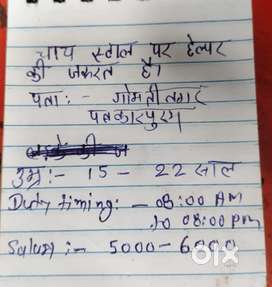 चाय स्टाल पर हेल्पर
की जरूरत है।
पता :- गोमती नगर
पत्रकारपुरम
उम्र :- 15 - 22 साल
Duty timing: - 08:00 AM
to 08:00 PM
Salary :- 5000-6000
olx